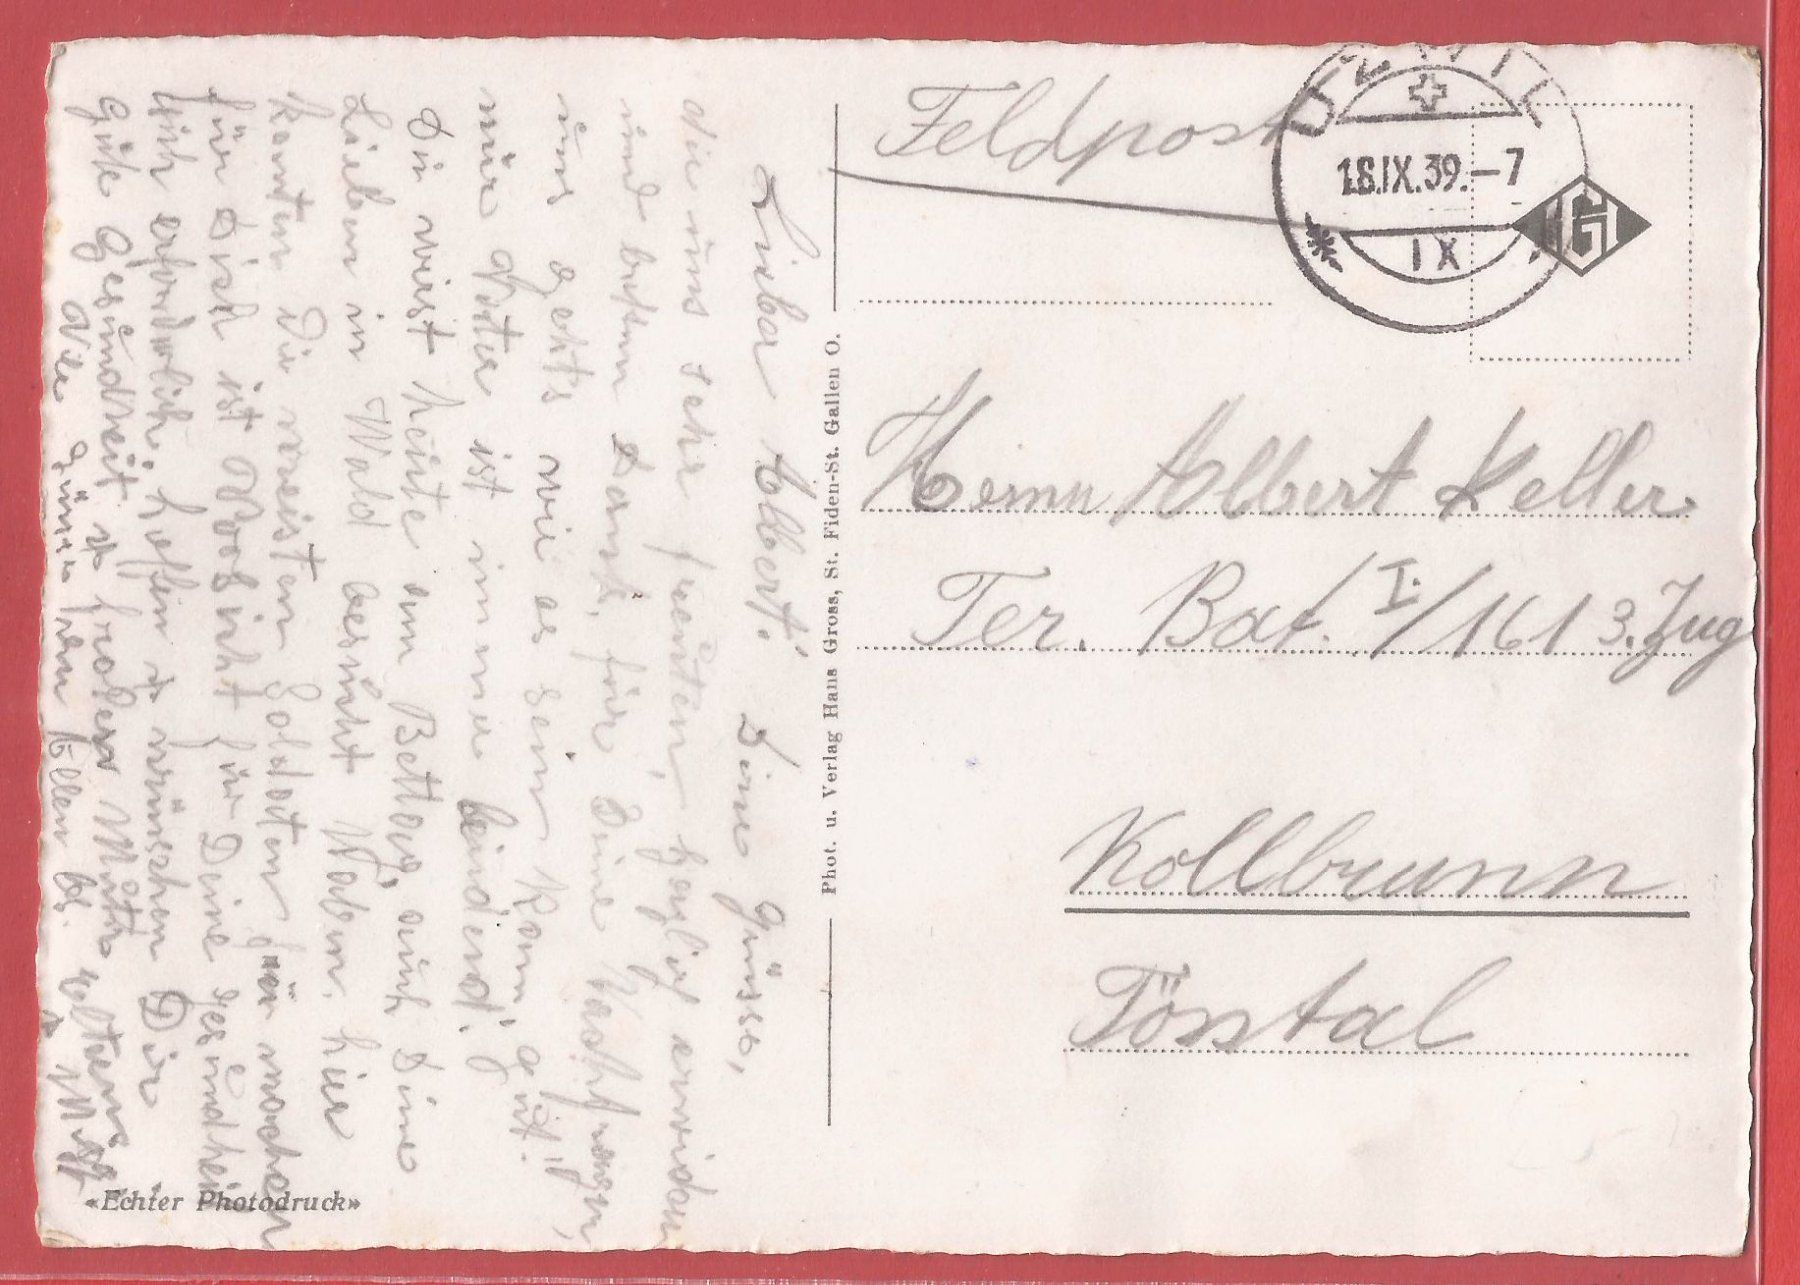 Feldpost
UZWIL
18.IX.39.-7
IX
HG
Herrn Albert Keller
Ter. Bat. I/161 3. Zug
Kollbrunn
Tösstal
Phot. u. Verlag Hans Gross, St. Fiden-St. Gallen O.
Lieber Albert! Deine Grüsse,
die uns sehr freuten, herzlich erwidern
und besten Dank, für Deine
uns gehts wie es sein kann, gut!
nur ist immer leidend!
Du wirst heute am Bettag, auch Deine
Lieben in Wald besucht haben. hier
konnten die meisten Soldaten
für Dich ist Vorsicht für Deine Gesundheit
erforderlich, hoffen & wünschen Dir
gute Gesundheit & frohen
viele
«Echter Photodruck»